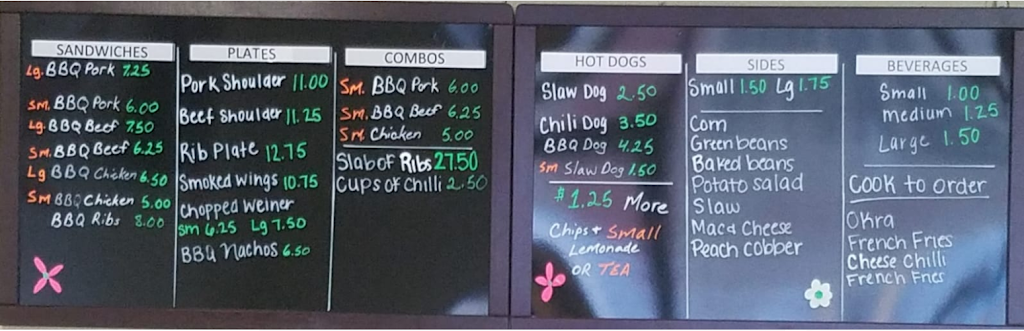 SANDWICHES
Lg. BBQ Pork 7.25
Sm. BBQ Pork 6.00
Lg. BBQ Beef 7.50
Sm. BBQ Beef 6.25
Lg BBQ Chicken 6.50
Sm BBQ Chicken 5.00
BBQ Ribs 8.00
PLATES
Pork Shoulder 11.00
Beef Shoulder 11.25
Rib Plate 12.75
Smoked Wings 10.75
Chopped Weiner
Sm 6.25 Lg 7.50
BBQ Nachos 6.50
COMBOS
Sm. BBQ Pork 6.00
Sm. BBQ Beef 6.25
Sm. Chicken 5.00
Slab of Ribs 27.50
Cups of Chilli 2.50
HOT DOGS
Slaw Dog 2.50
Chili Dog 3.50
BBQ Dog 4.25
Sm Slaw Dog 1.50
$1.25 More
Chips + Small
Lemonade
OR TEA
SIDES
Small 1.50 Lg 1.75
Corn
Green beans
Baked beans
Potato salad
Slaw
Mac & Cheese
Peach Cobber
BEVERAGES
Small 1.00
medium 1.25
Large 1.50
Cook to order
Okra
French Fries
Cheese Chilli
French Fries